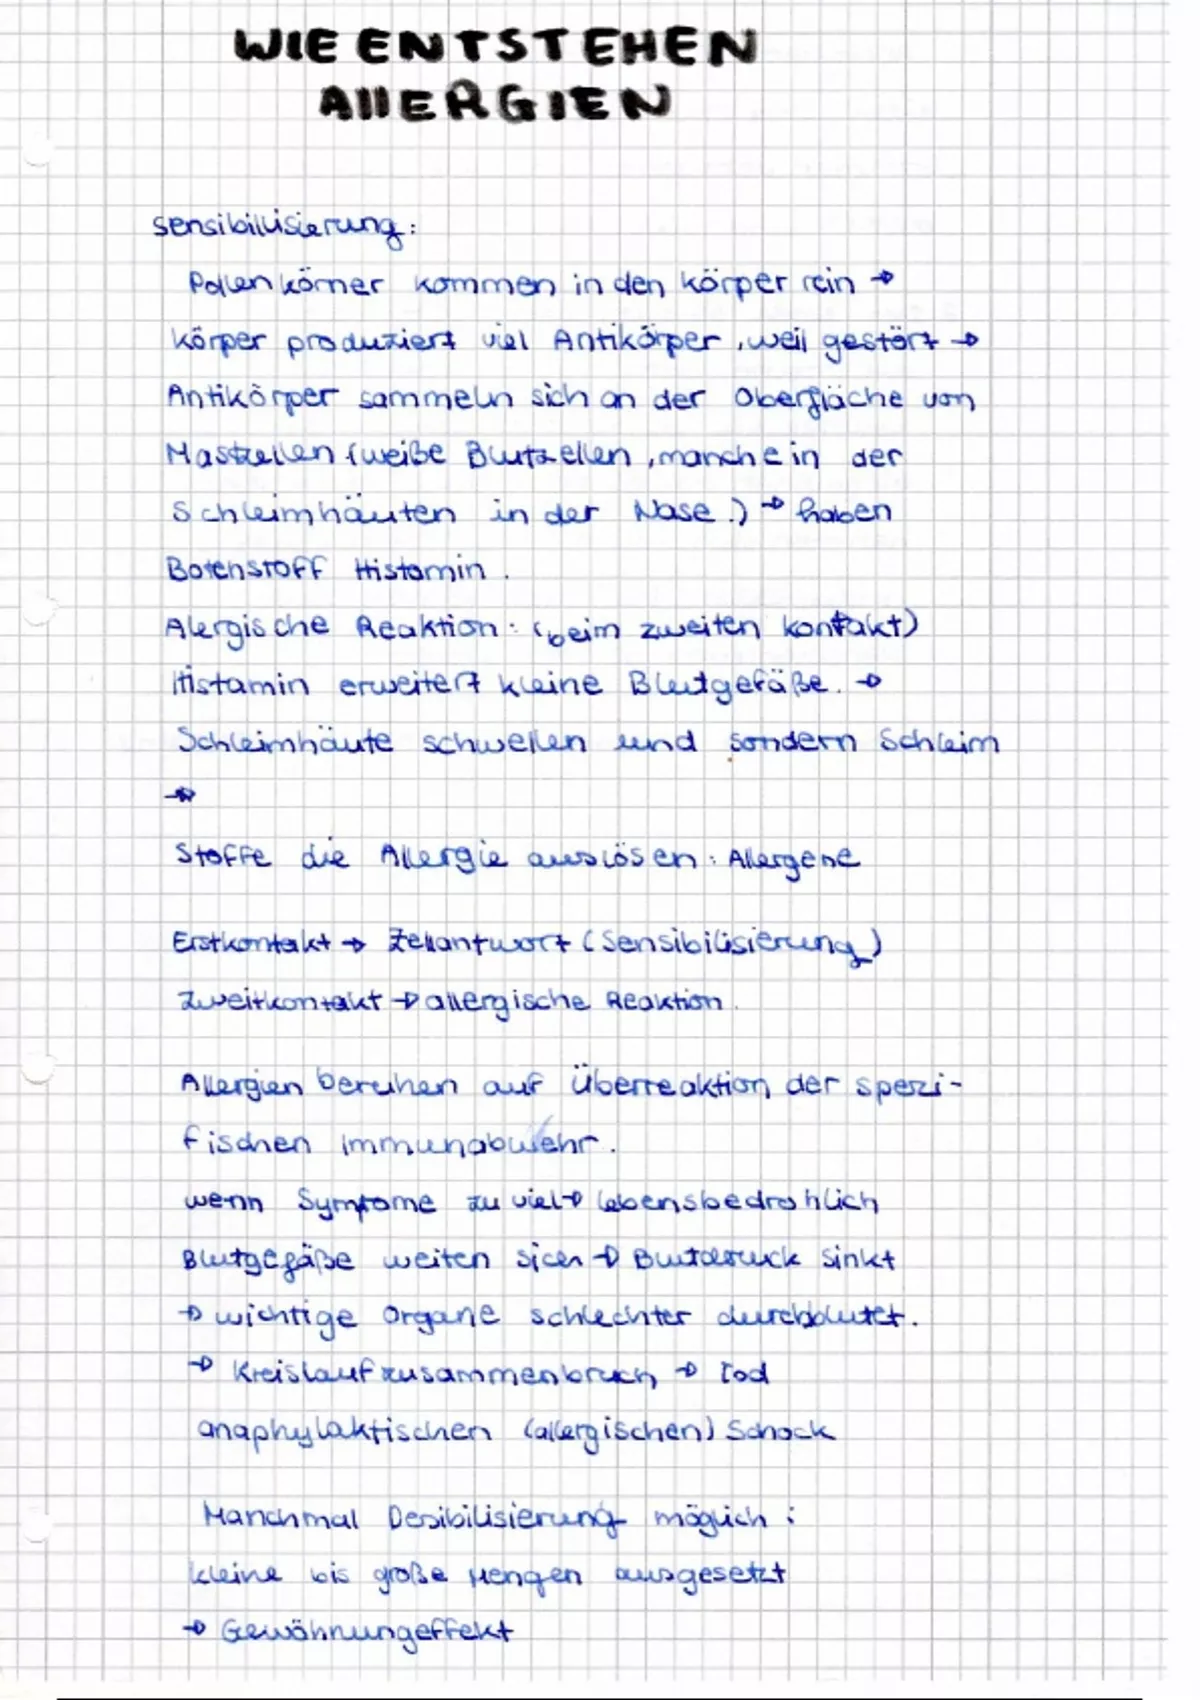 WIE ENTSTEHEN
AllERGIEN
sensibillisierung:
Pollenkörner kommen in den körper rein →
körper produziert viel Antikörper, weil gestört →
Antikörper sammeln sich an der Oberfläche von
Mastzellen (weiße Blutzellen, manche in der
Schleimhäuten in der Nase.) → haben
Botenstoff Histamin.
Alergische Reaktion: (beim zweiten kontakt)
Histamin erweitert kleine Blutgefäße. →
Schleimhäute schwellen und sondern Schleim
→
Stoffe die Allergie auslösen: Allergene
Erstkontakt → Zellantwort (Sensibilisierung)
Zweitkontakt → allergische Reaktion.
Allergien beruhen auf Überreaktion der spezi-
fischen immunabwehr.
wenn Symptome zu viel → lebensbedrohlich
Blutgefäße weiten sich → Blutdruck sinkt
→ wichtige Organe schlechter durchblutet.
→ Kreislaufzusammenbruch → Tod
anaphylaktischen (allergischen) Schock
Manchmal Desibilisierung möglich:
kleine bis große Mengen ausgesetzt
→ Gewöhnungeffekt